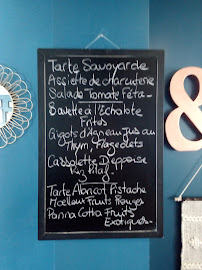 Tarte Savoyarde
Assiette de charcuterie
Salade Tomate Féta
Bavette à l'Echalote
Frites
Gigots d'Agneau Jus au
Thym Flageolets
Cassolette
Riz Pilaf
Tarte Abricot Pistache
Moelleux Fruits Rouges
Panna Cotta Fruits
Exotiques
&